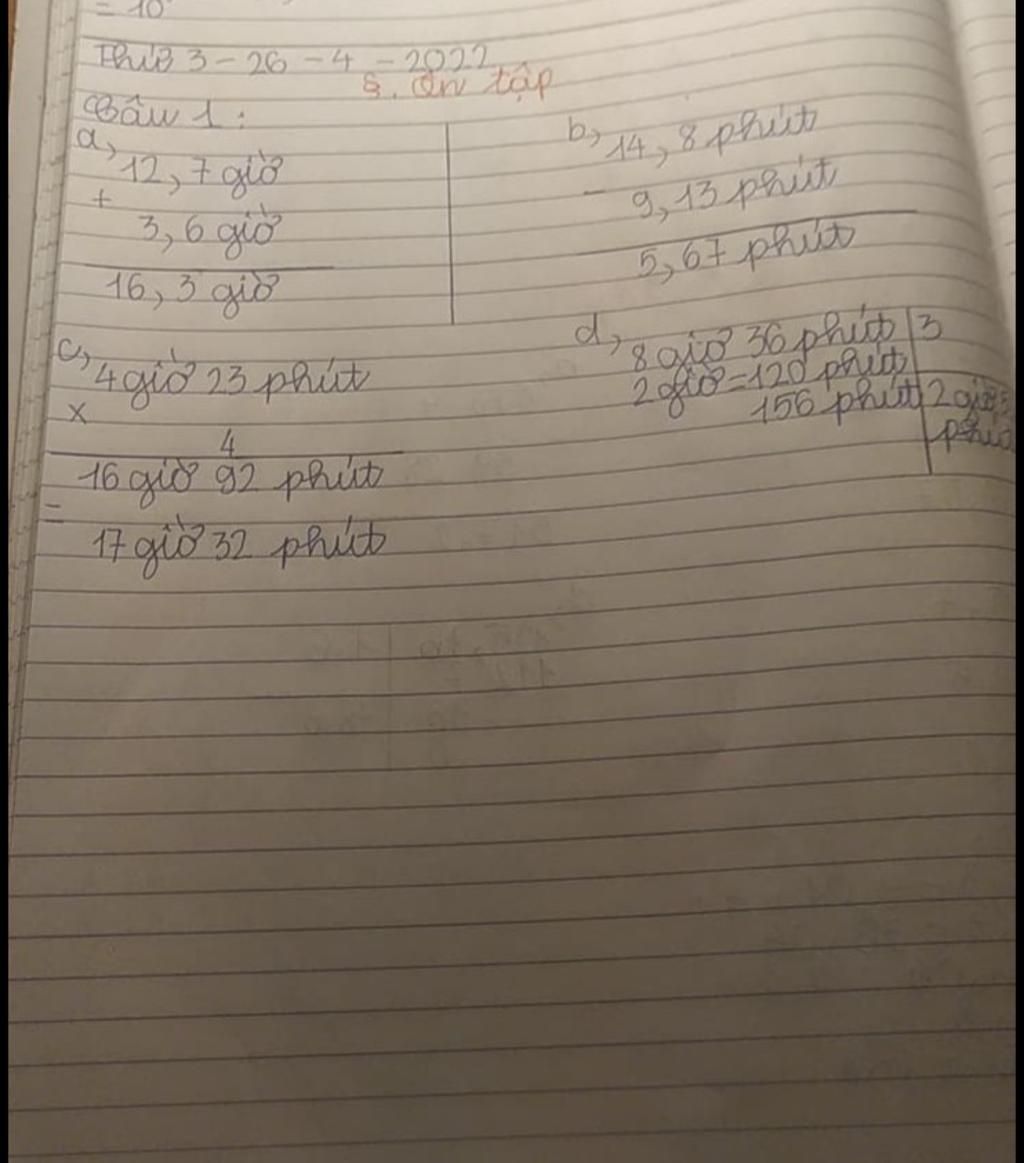 = 10
Thứ 3 - 26 - 4 - 2022
§. Ôn tập
Câu 1:
a, 12,7 giờ
+
3,6 giờ
16,3 giờ
b, 14,8 phút
-
9,13 phút
5,67 phút
c, 4 giờ 23 phút
x
4
16 giờ 92 phút
=
17 giờ 32 phút
d, 8 giờ 36 phút 3
2 giờ = 120 phút
156 phút 2 giờ